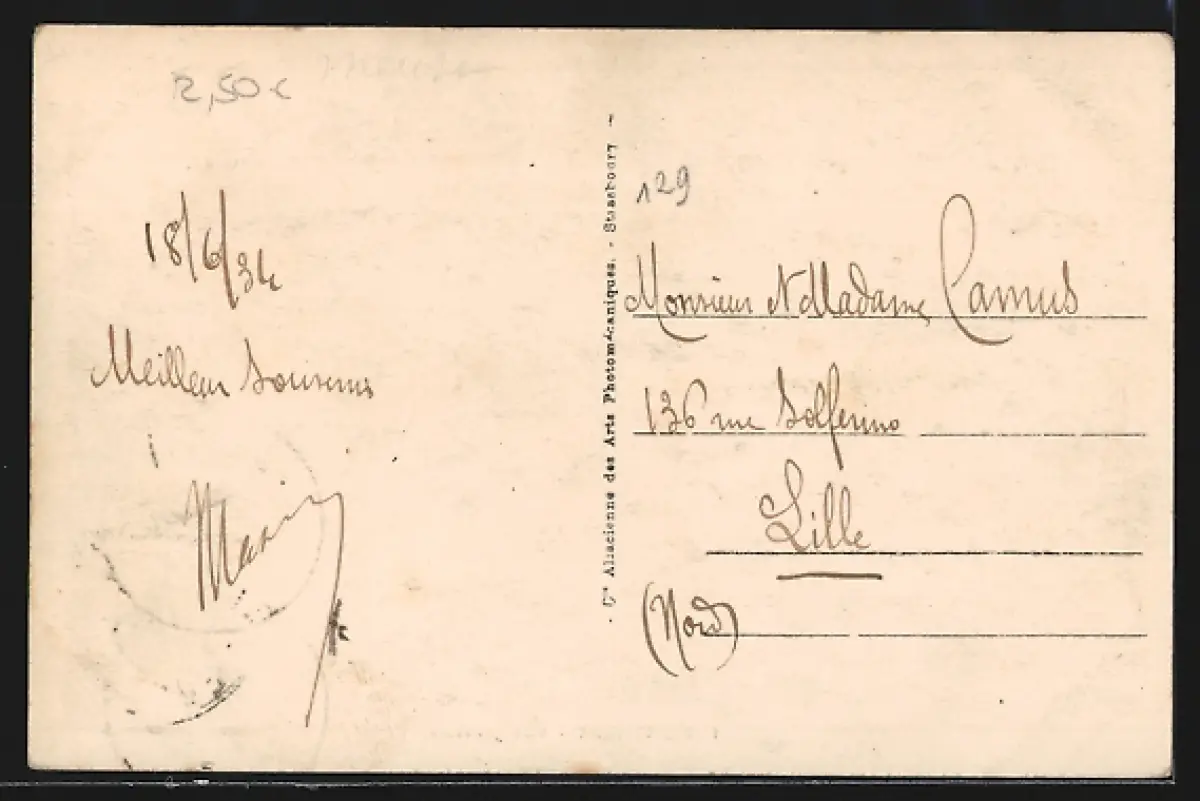 2,50 €
18/6/34
Meilleur Souvenir
- Cie Alsacienne des Arts Photomécaniques. - Strasbourg -
129
Monsieur & Madame Camus
136 rue Solferino
Lille
(Nord)